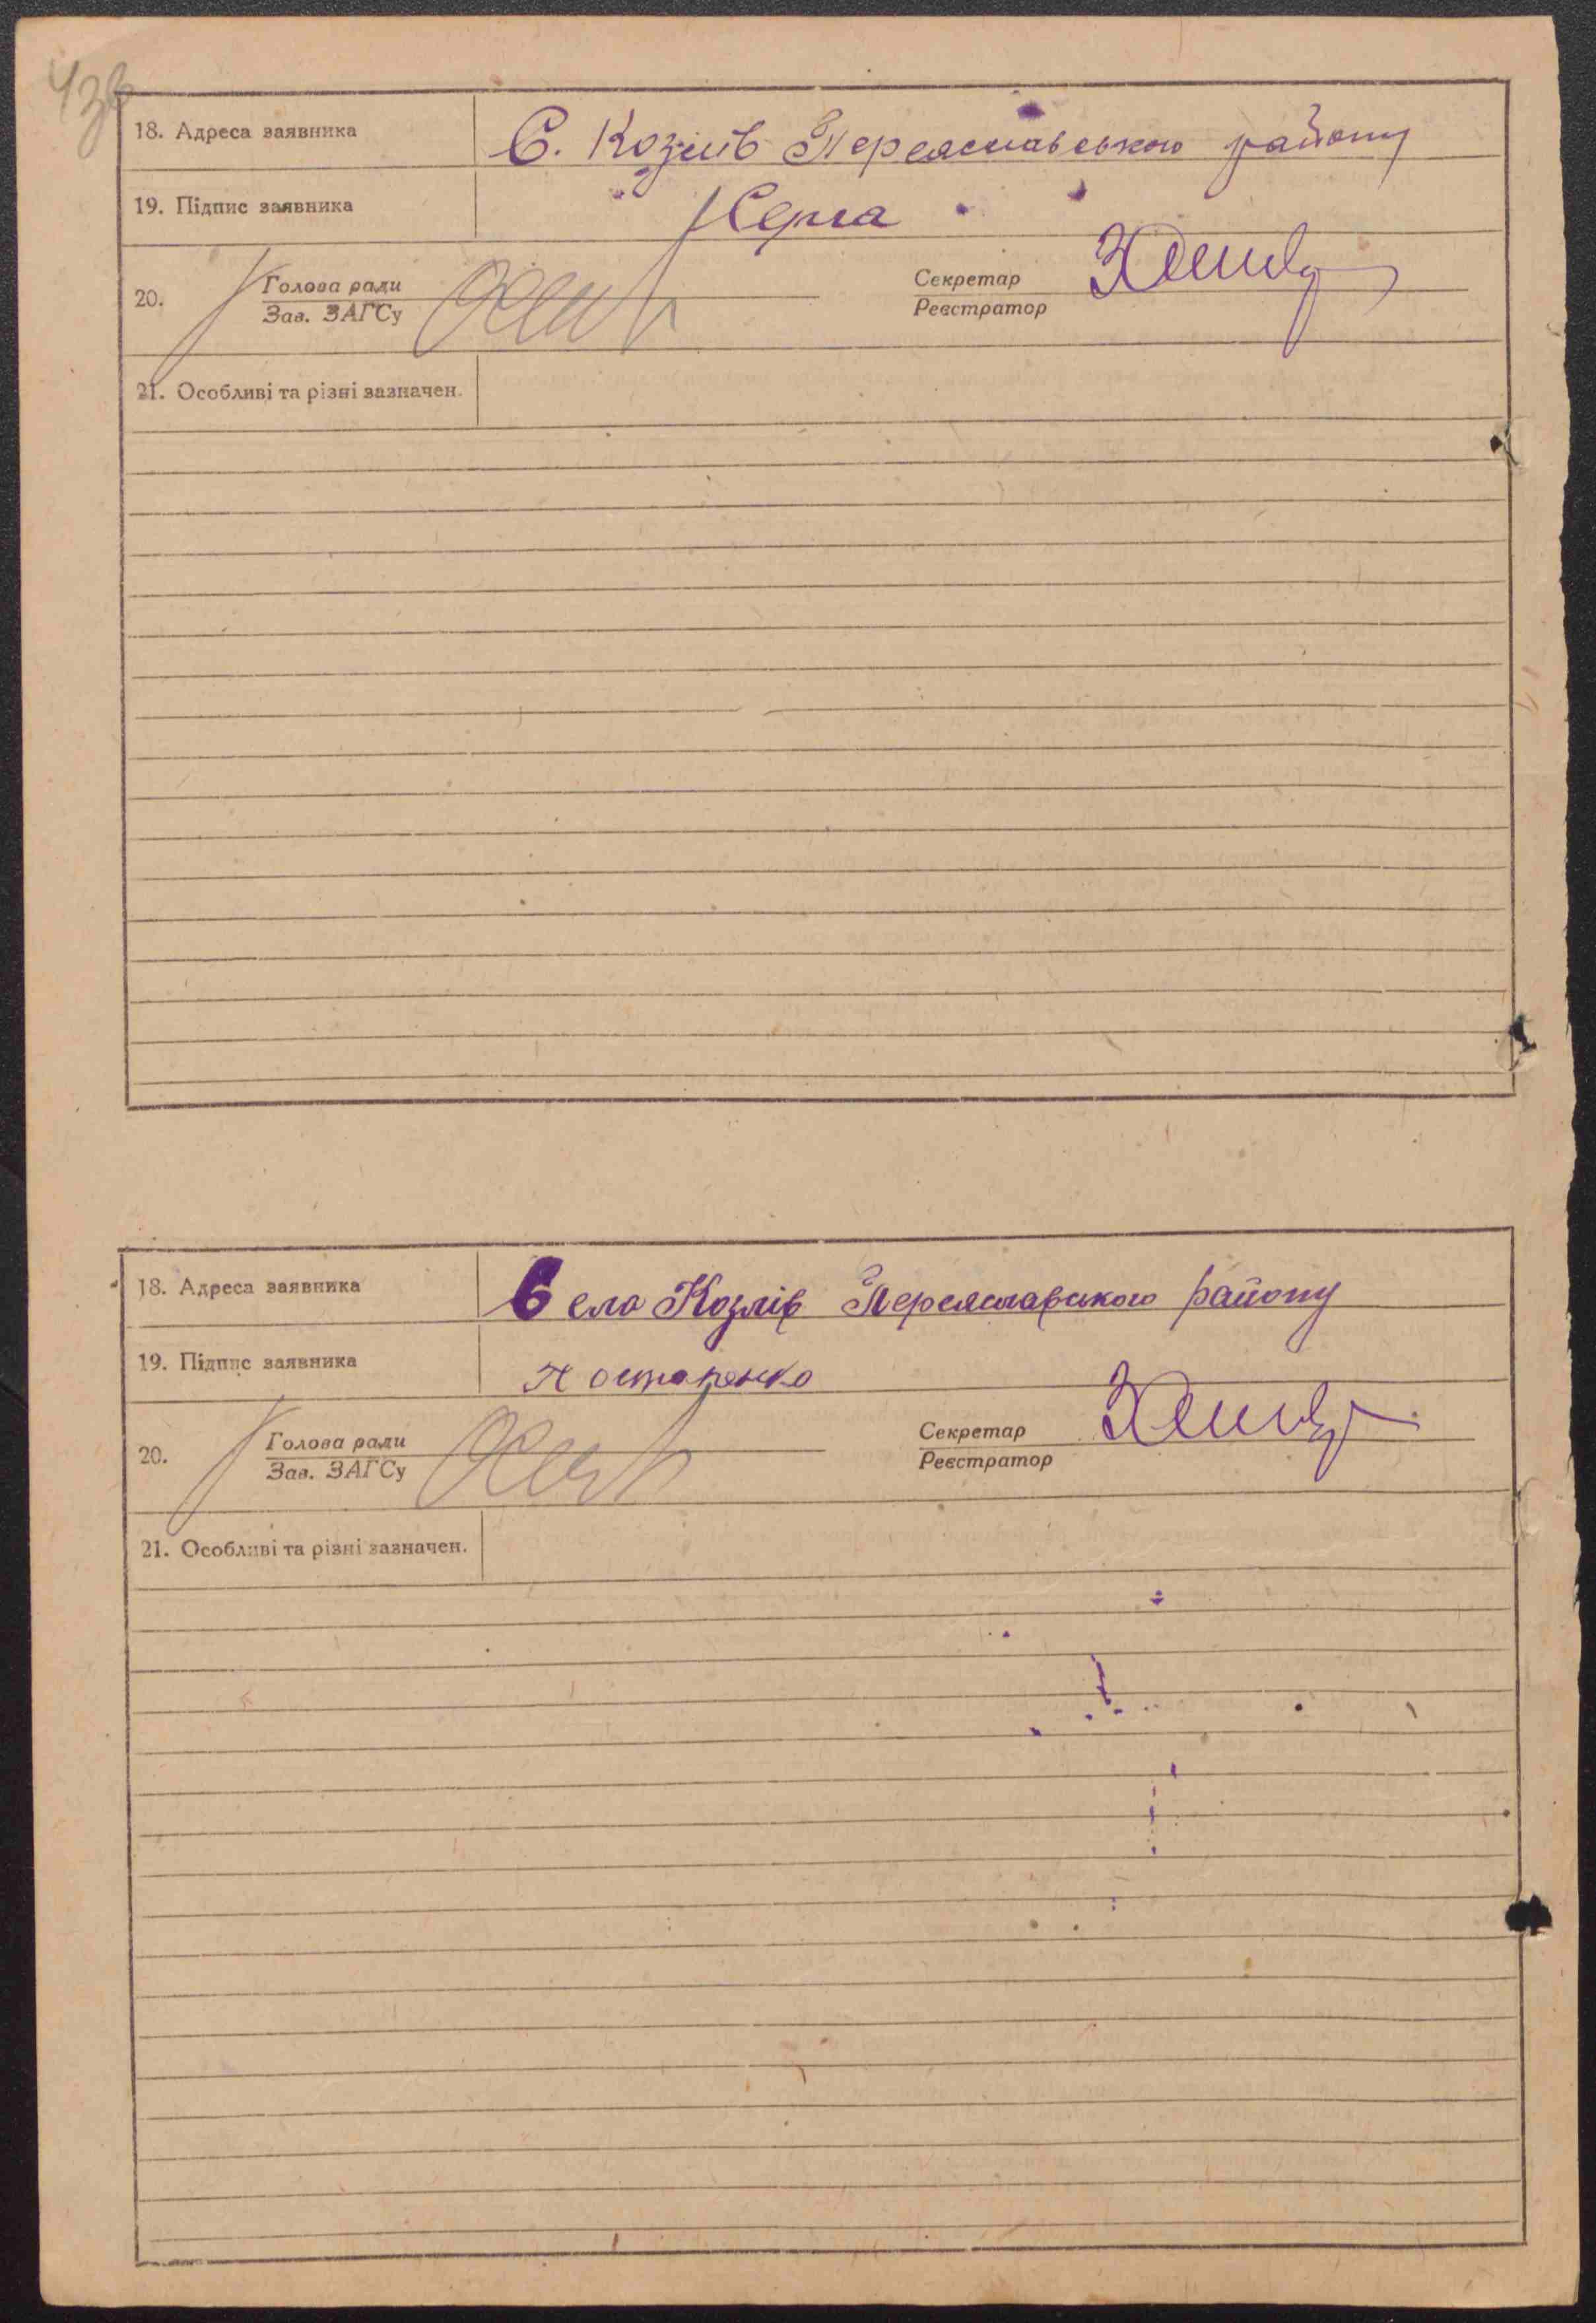 43в
18. Адреса заявника С. Козлів Переяславського району
19. Підпис заявника Серга
20. Голова ради Секретар
Зав. ЗАГСу Реєстратор
21. Особливі та різні зазначен.
18. Адреса заявника Села Козлів Переяславського району
19. Підпис заявника Костаренко
20. Голова ради Секретар
Зав. ЗАГСу Реєстратор
21. Особливі та різні зазначен.